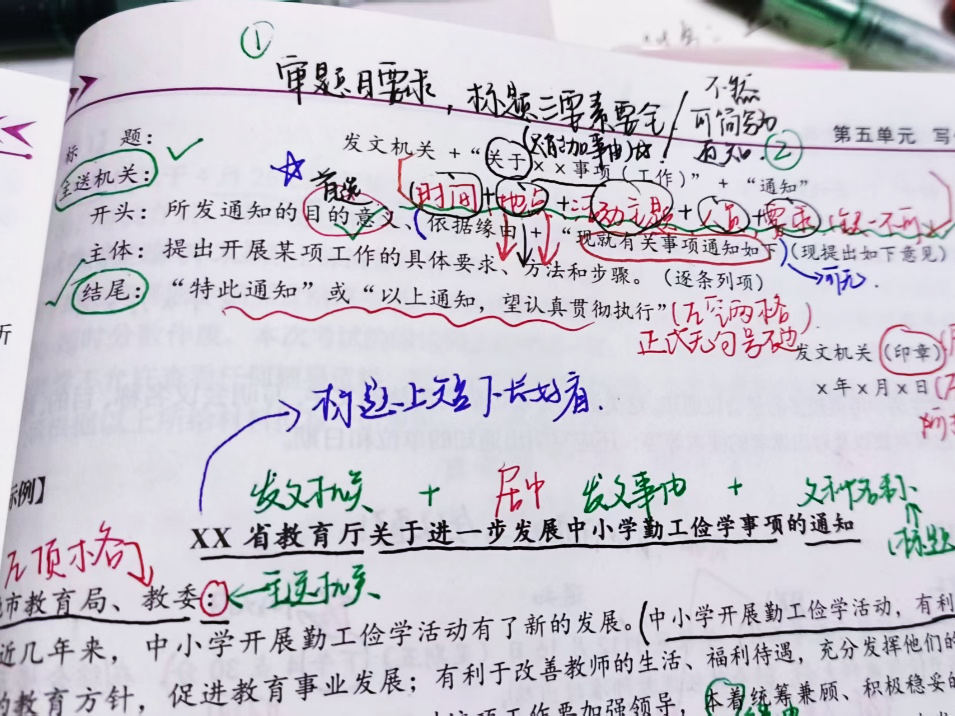 ①
审题目要求，标题三要素要全/不然
可简写为
通知.②
第五单元 写
标 题：发文机关+“关于××事项（工作）”+“通知”
主送机关：
首送
(时间+地点+活动主题+人员+要求
开头：所发通知的目的意义、依据缘由+“现就有关事项通知如下（现提出如下意见）
可无.
主体：提出开展某项工作的具体要求、方法和步骤。（逐条列项）
结尾：“特此通知”或“以上通知，望认真贯彻执行”(左空两格)
正式无句号
发文机关（印章）
×年×月×日
标题上短下长好看.
示例】
发文机关 + 居中 发文事由 + 文种名称
XX 省教育厅关于进一步发展中小学勤工俭学事项的通知
标题
左顶格
市教育局、教委：←主送机关
近几年来，中小学开展勤工俭学活动有了新的发展。(中小学开展勤工俭学活动，有利
的教育方针，促进教育事业发展；有利于改善教师的生活、福利待遇，充分发挥他们的
项工作要加强领导，本着统筹兼顾、积极稳妥的